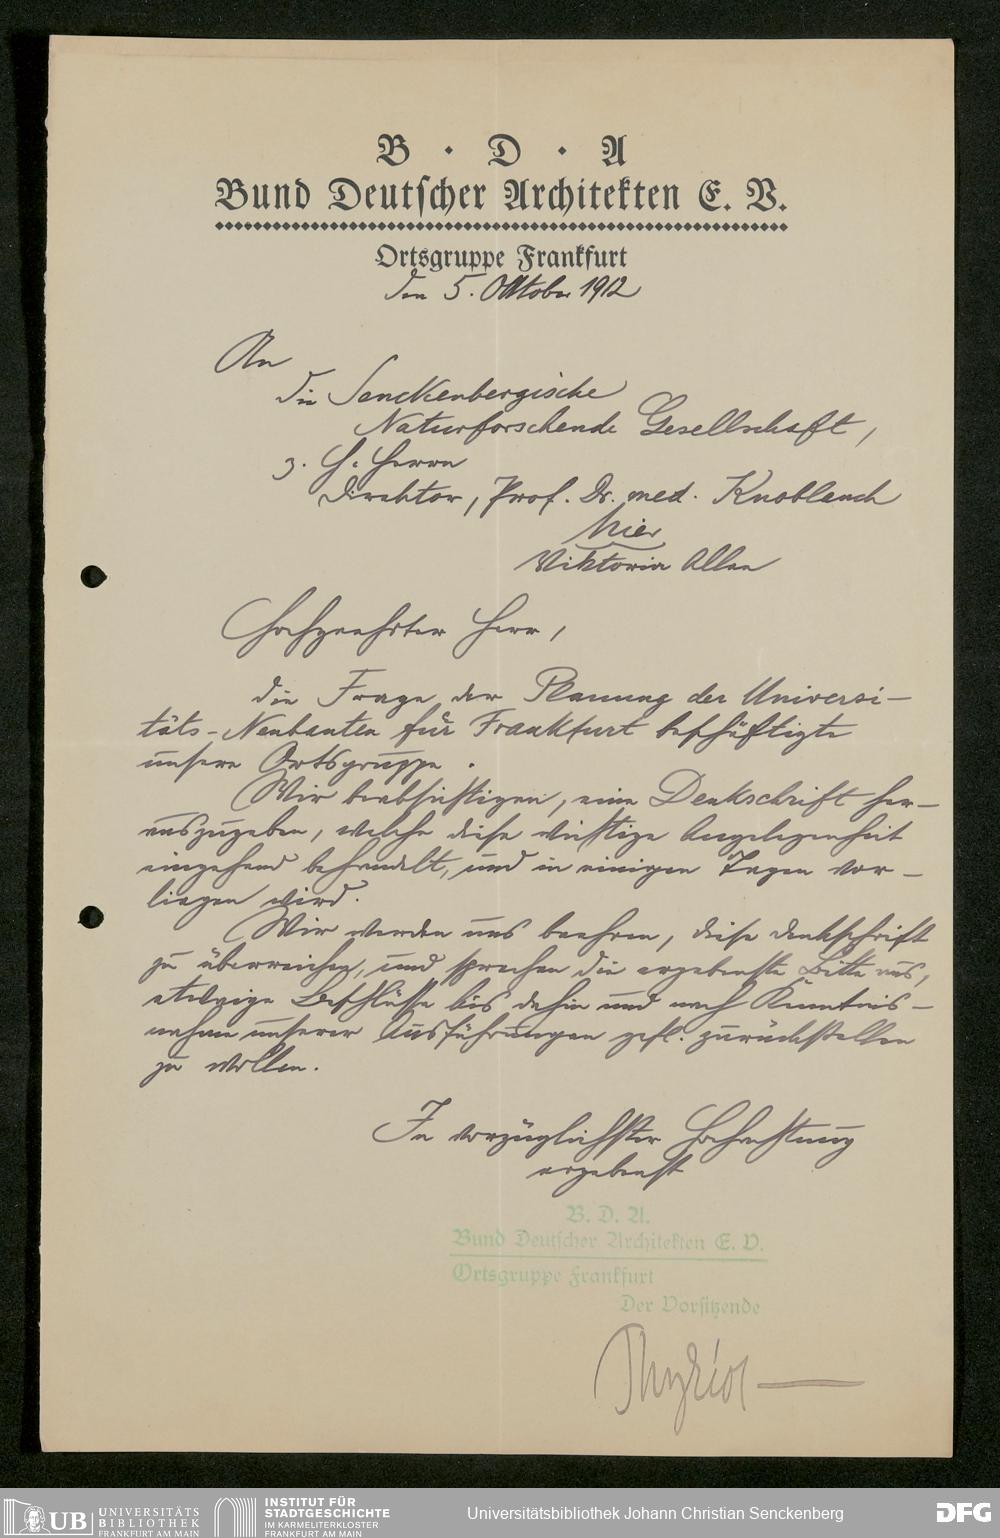 B · D · A
Bund Deutscher Architekten E. V.
Ortsgruppe Frankfurt
den 5. Oktober 1912
An
die Senckenbergische
Naturforschende Gesellschaft,
z. H. Herrn
Direktor, Prof. Dr. med. Knoblauch
hier
Viktoria Allee
Hochgeehrter Herr,
die Frage der Planung der Universi-
täts-Neubauten für Frankfurt beschäftigte
unsere Ortsgruppe.
Wir beabsichtigen, eine Denkschrift her-
auszugeben, welche diese wichtige Angelegenheit
eingehend behandelt, und in einigen Tagen vor-
liegen wird.
Wir werden uns beehren, diese Denkschrift
zu überreichen, und sprechen die ergebenste Bitte aus,
etwaige Beschlüsse bis dahin und nach Kenntnis-
nahme unserer Ausführungen gefl. zurückstellen
zu wollen.
In vorzüglichster Hochachtung
ergebenst
B. D. A.
Bund Deutscher Architekten E. V.
Ortsgruppe Frankfurt
Der Vorsitzende
Thyriot
UB UNIVERSITÄTS
BIBLIOTHEK
FRANKFURT AM MAIN
INSTITUT FÜR
STADTGESCHICHTE
IM KARMELITERKLOSTER
FRANKFURT AM MAIN
Universitätsbibliothek Johann Christian Senckenberg
DFG